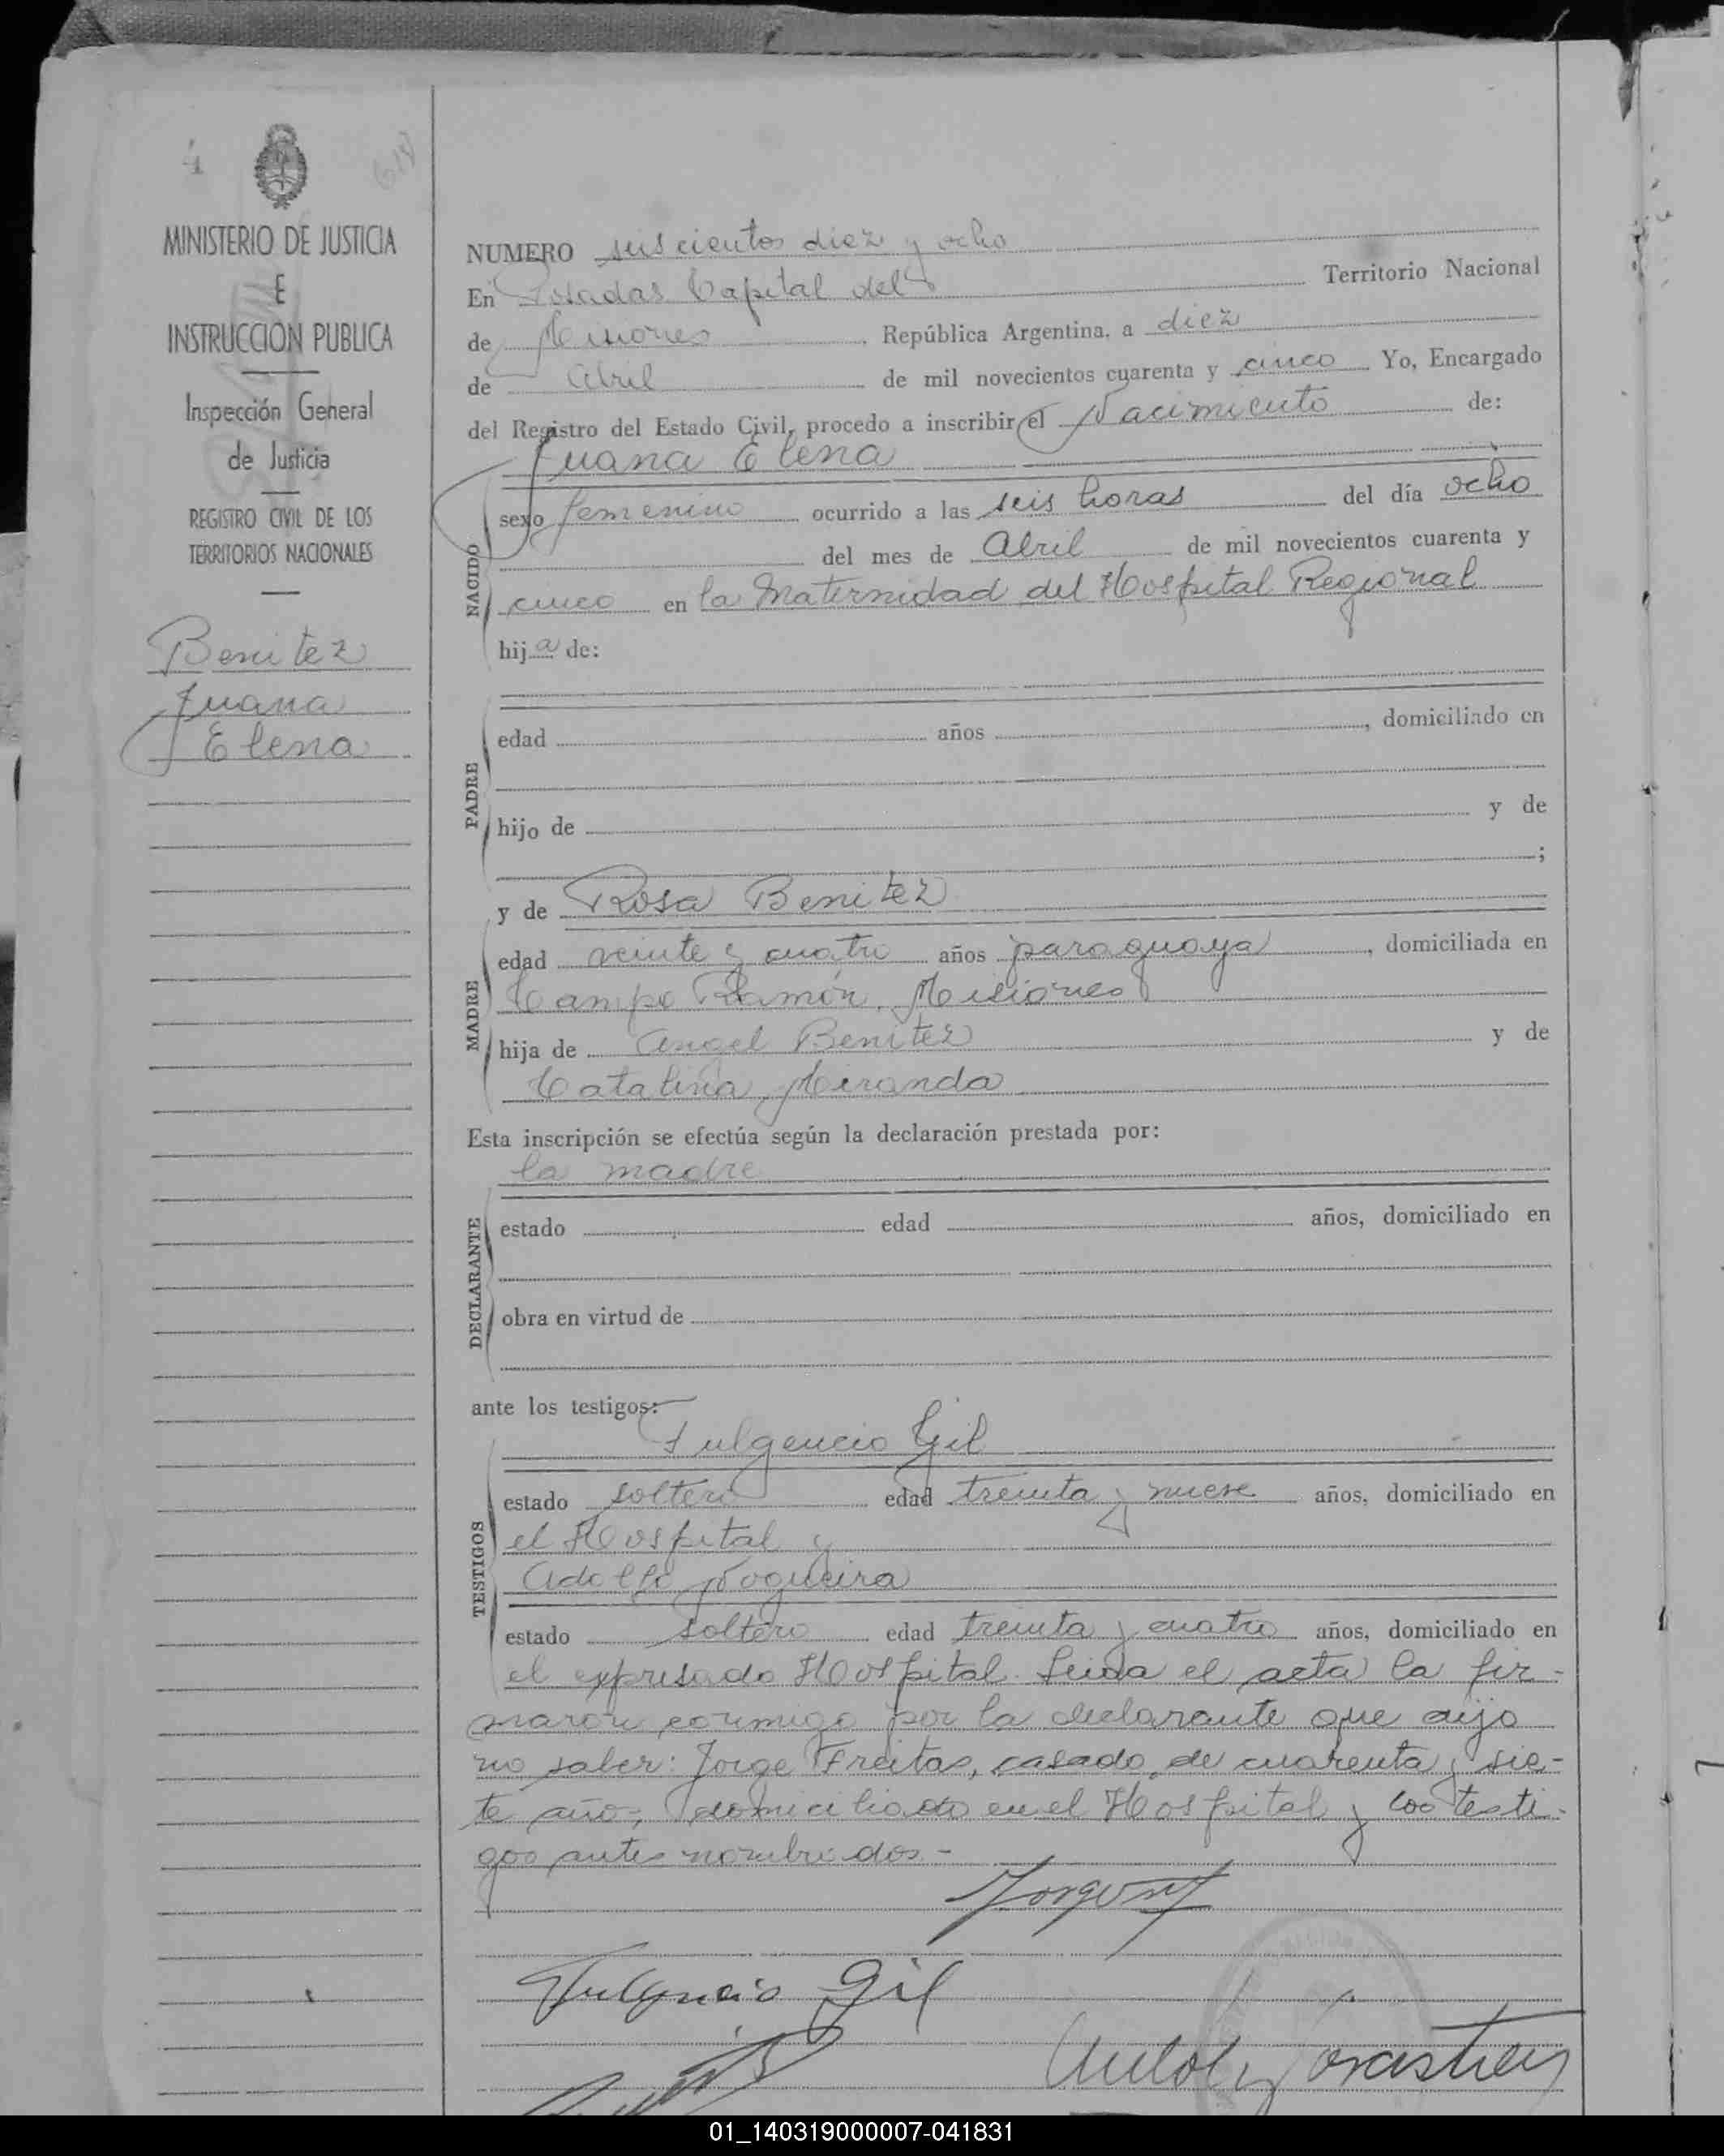 4
618
MINISTERIO DE JUSTICIA
E
INSTRUCCION PUBLICA
Inspección General
de Justicia
REGISTRO CIVIL DE LOS
TERRITORIOS NACIONALES
Benitez
Juana
Elena
NUMERO seiscientos diez y ocho
En Posadas Capital del Territorio Nacional
de Misiones, República Argentina, a diez
de Abril de mil novecientos cuarenta y cinco Yo, Encargado
del Registro del Estado Civil, procedo a inscribir el Nacimiento de:
Juana Elena
NACIDO
sexo femenino ocurrido a las seis horas del día ocho
del mes de Abril de mil novecientos cuarenta y
cinco en la Maternidad del Hospital Regional
hija de:
PADRE
edad años , domiciliado en
hijo de y de
;
MADRE
y de Rosa Benitez
edad veinte y cuatro años paraguaya , domiciliada en
Campo Ramón, Misiones
hija de Angel Benitez y de
Catalina Miranda
Esta inscripción se efectúa según la declaración prestada por:
la madre
DECLARANTE
estado edad años, domiciliado en
obra en virtud de
ante los testigos:
Fulgencio Gil
TESTIGOS
estado soltero edad treinta y nueve años, domiciliado en
el Hospital y
Adolfo Nogueira
estado soltero edad treinta y cuatro años, domiciliado en
el expresado Hospital. Leida el acta la fir-
maron conmigo por la declarante que dijo
no saber: Jorge Freitas, casado, de cuarenta y sie-
te años, domiciliado en el Hospital y los testi-
gos antes nombrados.-
Fulgencio Gil
01_140319000007-041831